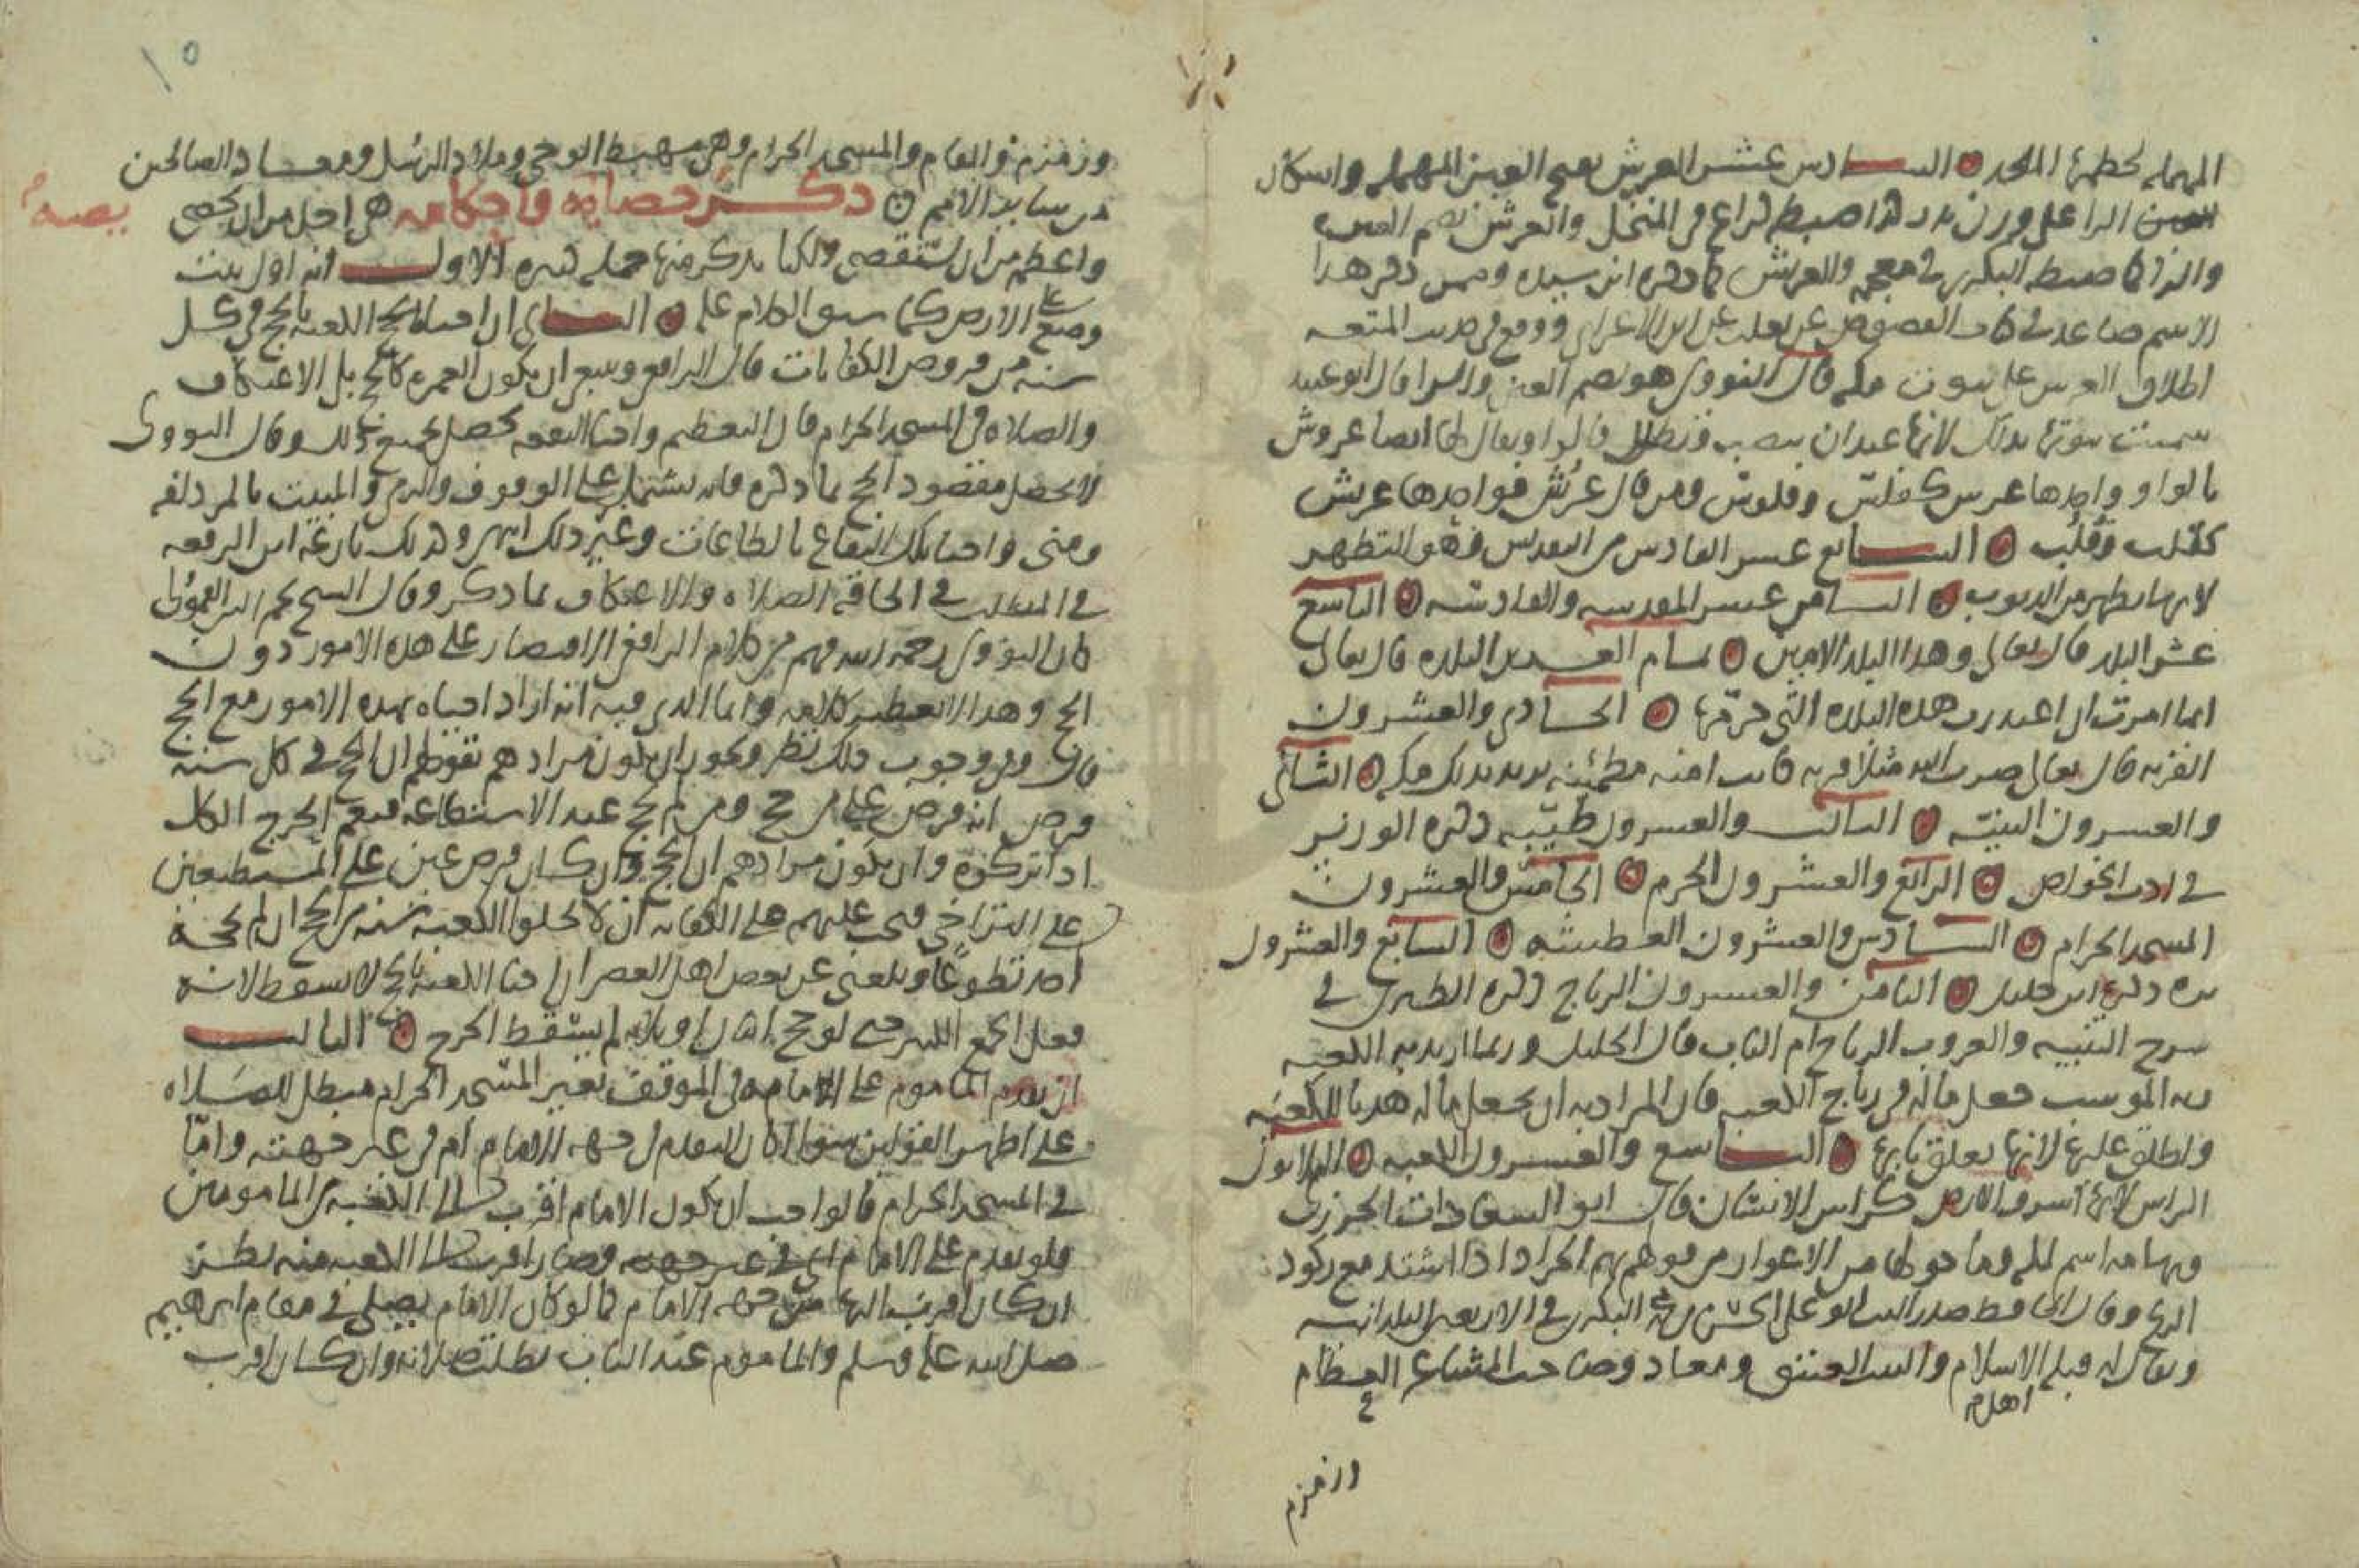 المهملة لحطمها الملحد ۞ السادس عشر العرش بفتح العين المهملة واسكان
الرا على وزن بدر كذا ضبطه كراع في المنجد والعرش بضم العين
والرا كما ضبطه البكري في معجمه والعريش كما ذكره ابن سيده وممن ذكر هذا
الاسم صاعد في كتاب الفصوص عن ثعلب عن ابن الاعرابي ووقع في حديث المتعة
اطلاق العرش على بيوت مكة قال النووي هو بضم العين والرا قال ابو عبيد
سميت بيوتها بذلك لانها عيدان تنصب وتظلل قالوا ويقال لها ايضا عروش
بالواو واحدها عرش كفلس وفلوس ومن قال عُرُش فواحدها عريش
كقليب وقُلُب ۞ السابع عشر القادس من التقديس وهو التطهير
لانها تطهر من الذنوب ۞ الثامن عشر المقدسه والقادسه ۞ التاسع
عشر البلد قال تعالى وهذا البلد الامين ۞ تمام العشرين البلدة قال تعالى
انما امرت ان اعبد رب هذه البلدة التي حرمها ۞ الحادي والعشرون
القرية قال تعالى ضرب الله مثلا قرية كانت امنة مطمئنة يريد بذلك مكة ۞ الثاني
والعشرون البنيّة ۞ الثالث والعشرون طيّبة ذكره الوزير
في ادب الخواص ۞ الرابع والعشرون الحرم ۞ الخامس والعشرون
المسجد الحرام ۞ السادس والعشرون العطشة ۞ السابع والعشرون
برة ذكره ابن خليل ۞ الثامن والعشرون الرتاج ذكره الطبري في
شرح التنبيه والمعروف الرتاج ام الباب قال الخليل وربما اريد به الكعبة
ومنه جعل ماله في رتاج الكعبة قال المراد به ان يجعل ماله هديا للكعبة
واطلق عليها لانها يغلق بابها ۞ التاسع والعشرون الكعبة ۞ الثلاثون
الراس لانها اشرف الارض كراس الانسان قال ابو السعادات الجزري
وتهامة اسم لمكة وما حولها من الاغوار من قولهم تهم الحر اذا اشتد مع ركود
الريح وقال الحافظ صدر الدين ابو علي الحسن بن محمد البكري في الاربعين البلدانية
ويقال له قبلة اهل الاسلام والبيت العتيق ومعاد وصاحب المشاعر العظام
وزمزم
وزمزم والمقام والمسجد الحرام وهي مهبط الوحي وملاذ الرسل ومعاد الصالحين
من ساير الامم ۞ ذكر خصايصه واحكامه هي اجل من ان تحصى
واعظم من ان تستقصى ولكنا نذكر منها جملة كثيرة الاول انه اول بيت
وضع على الارض كما سبق الكلام عليه ۞ الثاني ان احيا الكعبة بالحج في كل
سنة من فروض الكفايات قال الرافعي وينبغي ان يكون العمرة كالحج بل الاعتكاف
والصلاة في المسجد الحرام فان التعظيم واحيا البقعة يحصل بجميع ذلك وقال النووي
لا يحصل مقصود الحج بما ذكره فانه يشتمل على الوقوف والرمي والمبيت بالمزدلفة
ومنى واحيا تلك البقاع بالطاعات وغير ذلك انتهى وكذلك نازعه ابن الرفعة
في المطلب في الحاقه الصلاة والاعتكاف بما ذكر وقال الشيخ نجم الدين القمولي
كان النووي رحمه الله فهم من كلام الرافعي الاقتصار على هذه الامور دون
الحج وهذا لا يعطيه كلامه وانما الذي فيه انه اراد احياه بهذه الامور مع الحج
قال وفي وجوب ذلك نظر ويجوز ان يكون مرادهم بقولهم ان الحج في كل سنة
فرض انه فرض على من حج ومن لم يحج عند الاستطاعة فيعم الحرج الكل
اذا تركوه وان يكون مرادهم ان الحج وان كان فرض عين على المستطيعين
على التراخي فيجب عليهم على الكفاية ان لا يخلوا الكعبة سنة من الحج ان لم يحجه
احد تطوعًا وبلغني عن بعض اهل العصر ان احيا الكعبة بالحج لا يسقط الا بـ
فعل الجمع الكثير حتى لو حج اثنان او ثلاثة لم يسقط الحرج ۞ الثالث
ان تقدم الماموم على الامام في الموقف بغير المسجد الحرام مبطل للصلاة
على اظهر القولين سوا كان التقدم في جهة الامام ام في غير جهته واما
في المسجد الحرام قالوا يجب ان يكون الامام اقرب الى الكعبة من المامومين
فلو تقدم على الامام في غير جهته وصار اقرب الى الكعبة منه نظر
ان كان اقرب اليها من جهة الامام كما لو كان الامام يصلي في مقام ابرهيم
صلى الله عليه وسلم والماموم عند الباب بطلت صلاته وان كان اقرب